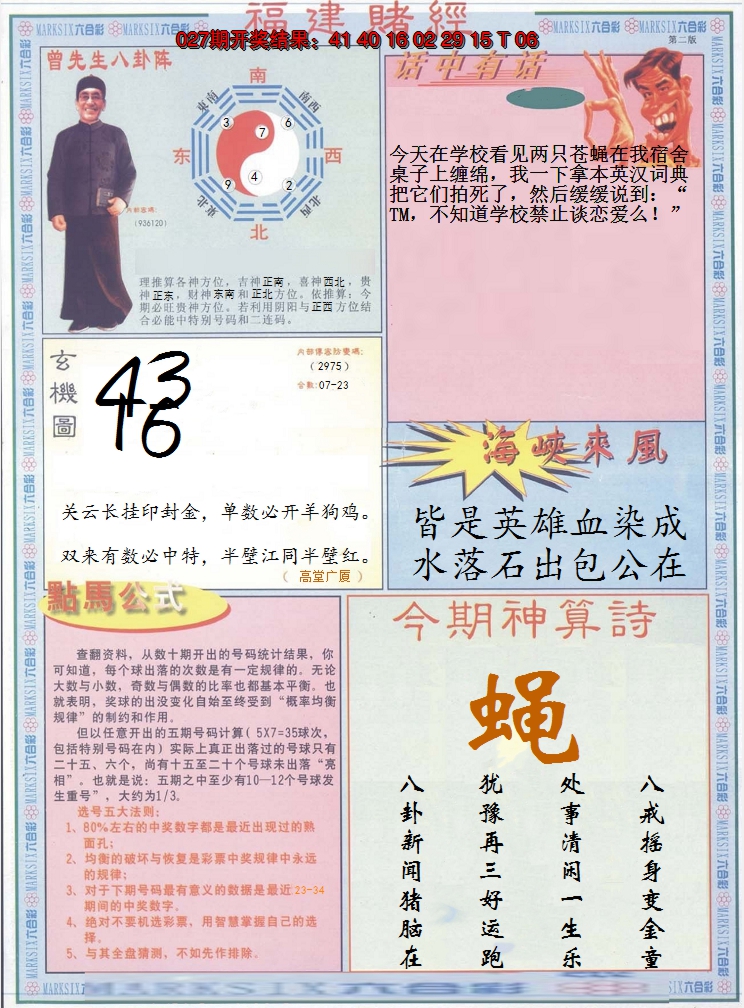 福建賭經
027期开奖结果：41 40 16 02 29 15 T 06
MARKSIX六合彩
第二版
曾先生八卦阵
南
東南
南西
3
7
6
东
西
9
4
2
東北
北西
北
內部密碼：
（936120）
理推算各神方位，吉神正南，喜神西北，贵
神正东，财神东南和正北方位。依推算：今
期必旺贵神方位。若利用阴阳与正西方位结
合必能中特别号码和二连码。
话中有话
今天在学校看见两只苍蝇在我宿舍
桌子上缠绵，我一下拿本英汉词典
把它们拍死了，然后缓缓说到：“
TM，不知道学校禁止谈恋爱么！”
玄機圖
43
16
（2975）
合数：07-23
关云长挂印封金，单数必开羊狗鸡。
双来有数必中特，半壁江同半壁红。
（ 高堂广厦 ）
海峽來風
皆是英雄血染成
水落石出包公在
點馬公式
查翻资料，从数十期开出的号码统计结果，你
可知道，每个球出落的次数是有一定规律的。无论
大数与小数，奇数与偶数的比率也都基本平衡。也
就表明，奖球的出没变化自始至终受到“概率均衡
规律”的制约和作用。
但以任意开出的五期号码计算（5X7=35球次，
包括特别号码在内）实际上真正出落过的号球只有
二十五、六个，尚有十五至二十个号球未出落“亮
相”。也就是说：五期之中至少有10—12个号球发
生重号”，大约为1/3。
选号五大法则：
1、80%左右的中奖数字都是最近出现过的熟
面孔；
2、均衡的破坏与恢复是彩票中奖规律中永远
的规律；
3、对于下期号码最有意义的数据是最近23-34
期间的中奖数字。
4、绝对不要机选彩票，用智慧掌握自己的选
择。
5、与其全盘猜测，不如先作排除。
今期神算詩
蝇
八戒摇身变金童
处事清闲一生乐
犹豫再三好运跑
八卦新闻猪脑在